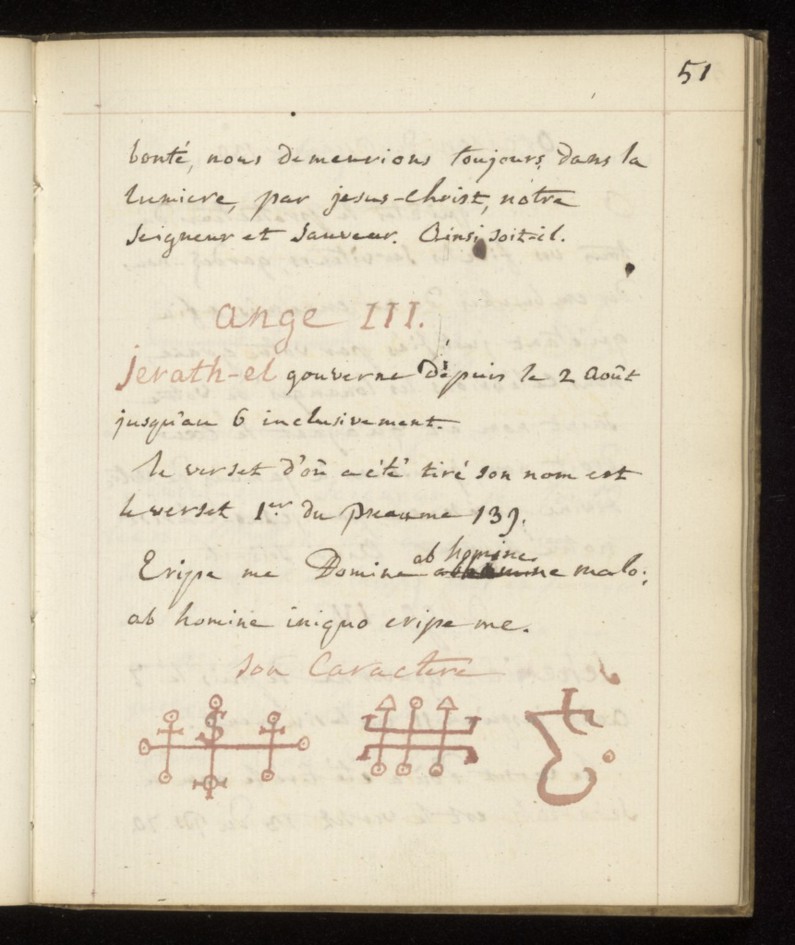 51
bonté, nous demeurions toujours dans la
lumiere, par jesus-Christ, notre
Seigneur et Sauveur. Ainsi soit-il.
ange III.
Jerath-el gouverne depuis le 2 Août
jusqu'au 6 inclusivement.
le verset d'où a été tiré son nom est
le verset 1er du pseaume 139.
Eripe me Domine ab homine malo;
ab homine iniquo eripe me.
Son Caractere